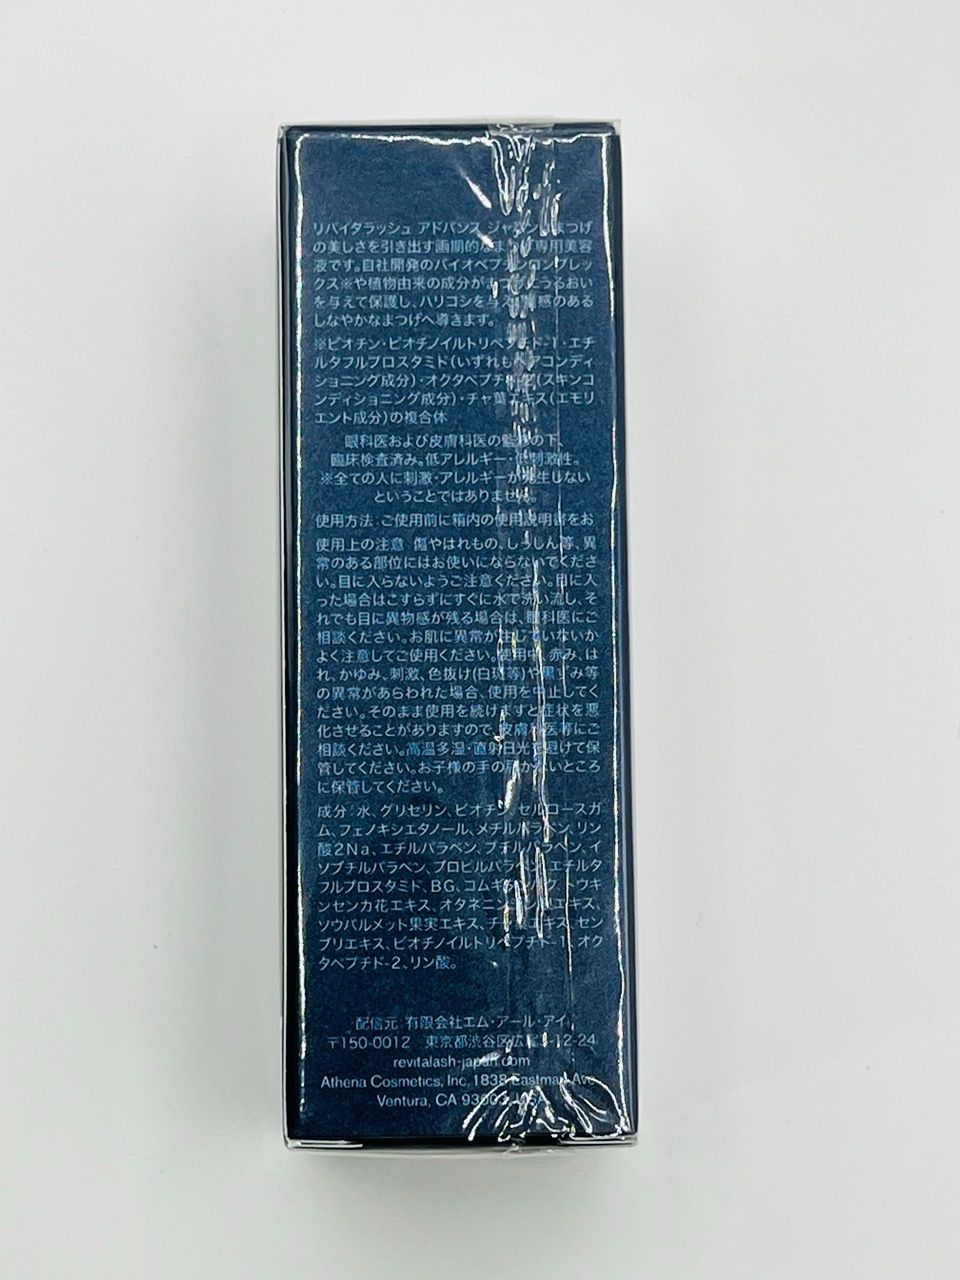 リバイタラッシュ アドバンス まつげ
の美しさを引き出す画期的な 専用美容
液です。自社開発のバイオペプチンコンプレッ
クス※や植物由来の成分がまつげにうるおい
を与えて保護し、ハリコシを与え 感のある
しなやかなまつげへ導きます。
※ビオチン・ビオチノイルトリペプチド-1・エチ
ルタフルプロスタミド(いずれもヘアコンディ
ショニング成分)・オクタペプチド-2(スキンコ
ンディショニング成分)・チャ葉エキス(エモリ
エント成分)の複合体
眼科医および皮膚科医の監修の下、
臨床検査済み。低アレルギー・低刺激性。
※全ての人に刺激・アレルギーが発生しない
ということではありません。
使用方法:ご使用前に箱内の使用説明書をお
使用上の注意 傷やはれもの、しっしん等、異
常のある部位にはお使いにならないでくださ
い。目に入らないようご注意ください。目に入
った場合はこすらずにすぐに水で洗い流し、そ
れでも目に異物感が残る場合は、眼科医にご
相談ください。お肌に異常が生じていないか
よく注意してご使用ください。使用中、赤み、は
れ、かゆみ、刺激、色抜け(白斑等)や黒ずみ等
の異常があらわれた場合、使用を中止してく
ださい。そのまま使用を続けますと症状を悪
化させることがありますので、皮膚科医等にご
相談ください。高温多湿・直射日光を避けて保
管してください。お子様の手の届かないところ
に保管してください。
成分:水、グリセリン、ビオチン、セルロースガ
ム、フェノキシエタノール、メチルパラベン、リン
酸2Na、エチルパラベン、ブチルパラベン、イ
ソブチルパラベン、プロピルパラベン、エチルタ
フルプロスタミド、BG、コムギ トウキ
ンセンカ花エキス、オタネニン エキス、
ソウパルメット果実エキス、チャ葉エキス、セン
ブリエキス、ビオチノイルトリペプチド-1、オク
タペプチド-2、リン酸。
配信元 有限会社エム・アール・アイ
〒150-0012 東京都渋谷区広尾 -12-24
revitalash-japan.com
Athena Cosmetics, Inc. 1838 Eastman Ave
Ventura, CA 93003, USA